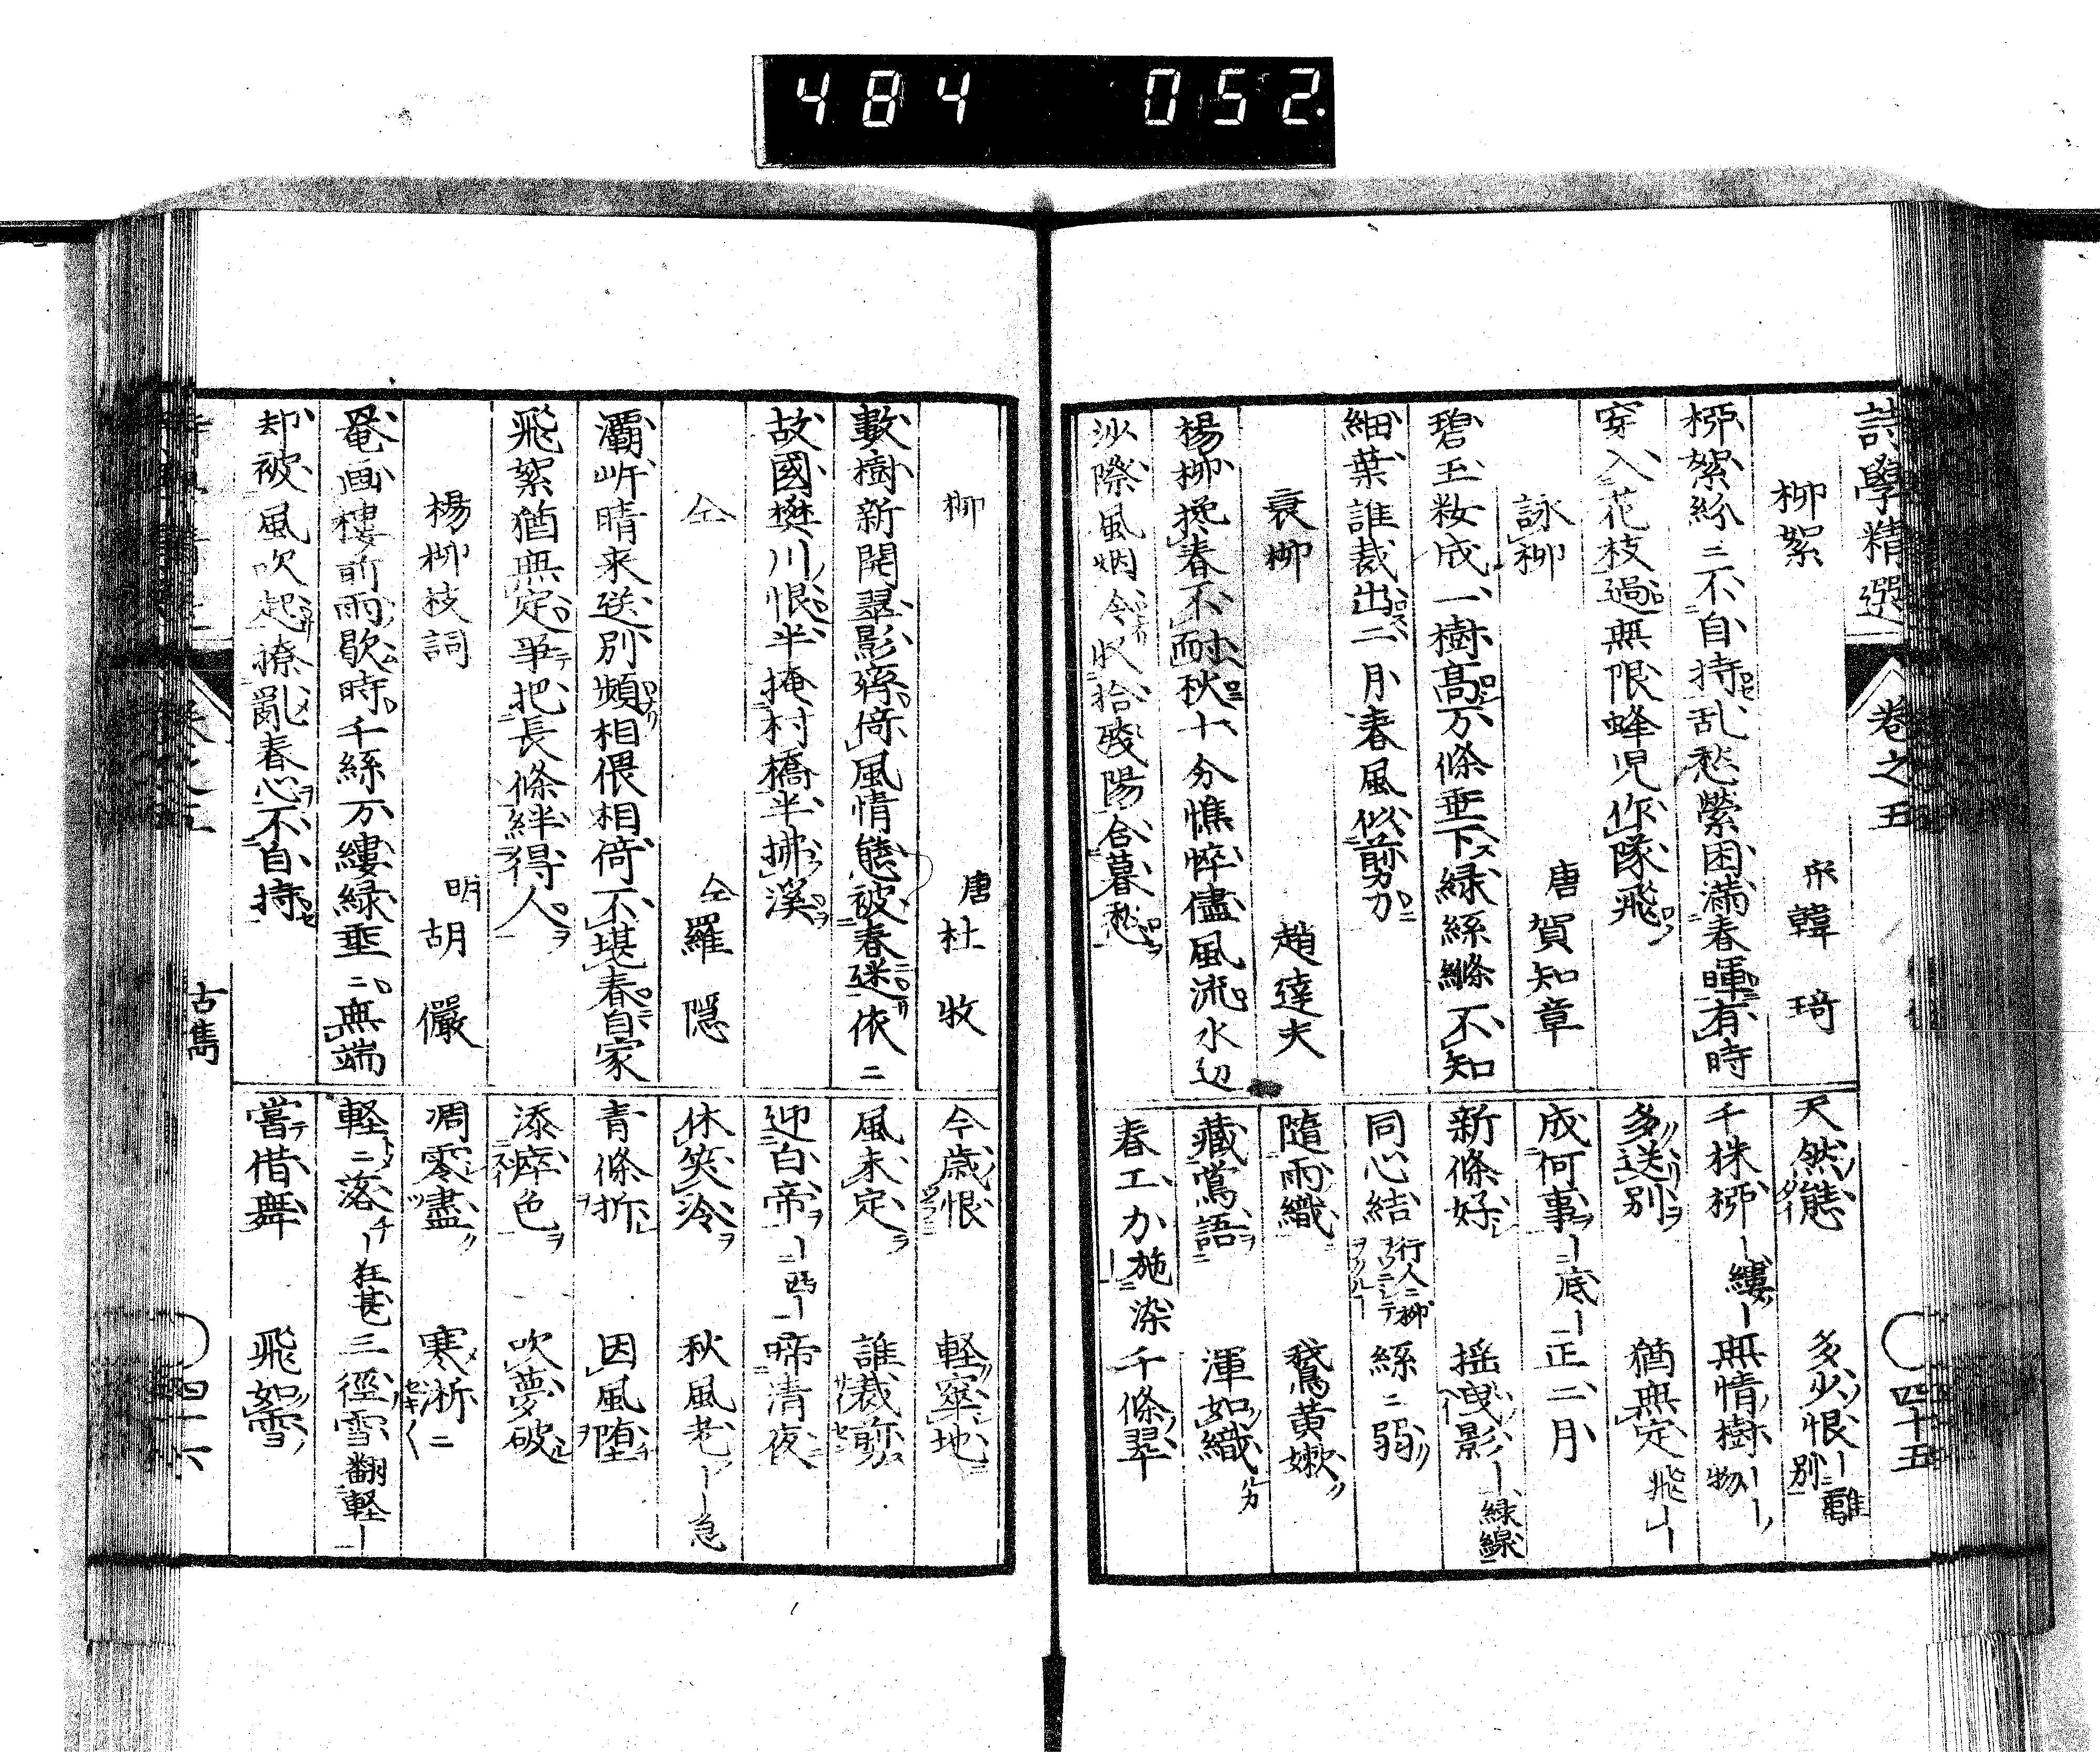 484 052.
詩學精選 卷之五 四十五
柳絮 宋韓琦
柳絮絲〻不自持乱愁縈困滿春暉有時
穿入花枝過無限蜂児作隊飛
詠柳 唐賀知章
碧玉粧成一樹高万條垂下緑絲絛不知
細葉誰裁出二月春風似剪刀
衰柳 趙達夫
楊柳攙春不耐秋十分憔悴儘風流水辺
沙際風烟令收拾殘陽合暮愁
天然態 多少恨 離別
千株柳 縷 無情樹 物
多送別 猶無定 飛
成何事 底 正二月
新條好 揺曳影 緑線
同心結 絲〻弱
隨雨織 鵞黄嫩
藏鴬語 渾如織
春工力施染千條翠
柳 唐杜牧
數樹新開翠影齊倚風情態被春迷依〻
故國樊川恨半掩村橋半拂溪
仝 仝羅隠
灞岍晴来送別頻相偎相倚不堪春自家
飛絮猶無定争把長條絆得人
楊柳枝詞 明胡儼
罨画楼前雨歇時千絲万縷緑垂〻無端
却被風吹起撩亂春心不自持
今歳恨 軽窣地
風未定 誰裁剪
迎白帝 啼清夜
休笑泠 秋風老 急
青條折 因風堕
添瘁色 吹夢破
凋零盡 寒淅〻
軽〻落 狂甚 三徑雪 翻軽
當借舞 飛如雪
古雋
四十六